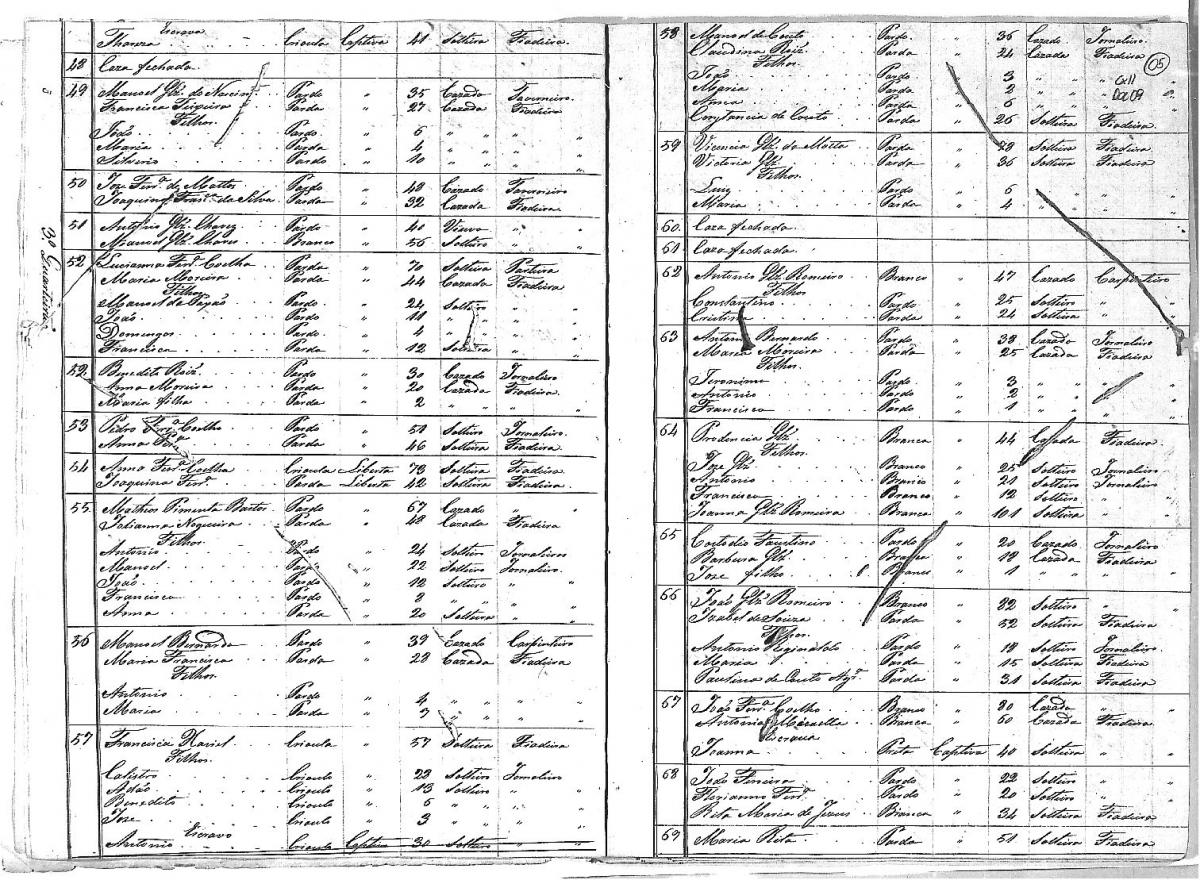 Escrava
Thereza Crioula Captiva 41 Solteira Fiadeira
48 Caza fechada
49 Manoel Glz. do Nascim.to Pardo " 35 Cazado Taverneiro
Francisca Siqueira Parda " 27 Cazada Fiadeira
Filhos
João Pardo " 6 " " "
Maria Parda " 4 " " "
Silverio Pardo " 10 " " "
50 Joze Ferr.a de Mattos Pardo " 48 Cazado Taverneiro
Joaquina Fran.ca da Silva Parda " 32 Cazada Fiadeira
51 Antonio Glz. Chaves Pardo " 40 Viuvo
Manoel Glz. Chaves Branco " 56 Solteiro
3.o Quarteirão
52 Lucianna Ferr.a Coelha Parda " 70 Solteira Parteira
Maria Moreira Parda " 44 Cazada Fiadeira
Filhos
Manoel Pardo " 24 Solteiro "
João Pardo " 11 " "
Domingos Pardo " 4 " "
Francisca Parda " 12 Solteira "
52 Benedito Roiz. Pardo " 30 Cazado Jornaleiro
Anna Moreira Parda " 20 Cazada Fiadeira
Maria filha Parda " 2 " " "
53 Pedro Ferr.a Coelho Pardo " 50 Solteiro Jornaleiro
Anna Parda " 46 Solteira Fiadeira
54 Anna Ferr.a Coelha Crioula Liberta 73 Solteira Fiadeira
Joaquina Ferr.a Parda Liberta 42 Solteira Fiadeira
55 Mathias Pimenta Pardo " 67 Cazado "
Fabianna Nogueira Parda " 48 Cazada Fiadeira
Filhos
Antonio Pardo " 24 Solteiro Jornaleiro
Manoel Pardo " 22 Solteiro Jornaleiro
João Pardo " 12 Solteiro " "
Francisco Pardo " 2 " "
Anna Parda " 20 Solteira "
56 Manoel Bernardo Pardo " 39 Cazado Carpinteiro
Maria Francisca Parda " 28 Cazada Fiadeira
Filhos
Antonio Pardo " 4 " "
Maria Parda " 7 " " "
57 Francisca Maciel Crioula " 57 Solteira Fiadeira
Filhos
Calistro Crioulo " 28 Solteiro Jornaleiro
Adão Crioulo " 13 Solteiro "
Benedito Crioulo " 5 " "
Joze Crioulo " 3 " "
Escravo
Antonio Crioulo Captivo 30 Solteiro "
58 Manoel de Couto Pardo " 36 Cazado Jornaleiro
Claudina Roiz. Parda " 24 Cazada Fiadeira
Filhos
05
João Pardo " 3 " " "
Cx11
Maria Parda " 2 " " "
Doc09
Anna Parda " 6 " " "
Constancia de Couto Parda " 26 Solteira Fiadeira
59 Vicencia Glz. da Motta Parda " 78 Solteira Fiadeira
Victoria Glz. Parda " 36 Solteira Fiadeira
Filhos
Luiz Pardo " 6 " "
Maria Parda " 4 " "
60 Caza fechada
61 Caza fechada
62 Antonio Glz. Romeiro Branco " 47 Cazado Carpinteiro
Filhos
Constantino Pardo " 25 Solteiro "
Cristina Parda " 24 Solteira "
63 Antonio Bernardo Pardo " 38 Cazado Jornaleiro
Maria Moreira Parda " 25 Cazada Fiadeira
Filhos
Jeronimo Pardo " 3 " " "
Antonio Pardo " 2 " "
Francisco Pardo " 1 " "
64 Prudencia Glz. Branca " 44 Cazada Fiadeira
Filhos
Joze Glz. Branco " 25 Solteiro Jornaleiro
Antonio Branco " 21 Solteiro Jornaleiro
Francisco Branco " 12 Solteiro "
Joanna Glz. Romeira Branca " 101 Solteira "
65 Custodio Faustino Pardo " 20 Cazado Jornaleiro
Barbara Glz. Branca " 18 Cazada Fiadeira
Joze filho Branco " 1 " " "
66 João Glz. Romeiro Branco " 82 Solteiro "
Izabel de Souza Parda " 52 Solteira Fiadeira
Filhos
Antonio Reginaldo Pardo " 18 Solteiro Jornaleiro
Maria Parda " 15 Solteira Fiadeira
Paulina de Couto Parda " 31 Solteira Fiadeira
67 João Ferr.a Coelho Branco " 80 Cazado "
Antonia Branca " 60 Cazada Fiadeira
Escrava
Joanna Preta Captiva 40 Solteira "
68 João Ferreira Pardo " 22 Solteiro "
Florianno Ferr.a Pardo " 20 Solteiro "
Rita Maria de Jezus Branca " 34 Solteira Fiadeira
69 Maria Rita Parda " 51 Solteira Fiadeira